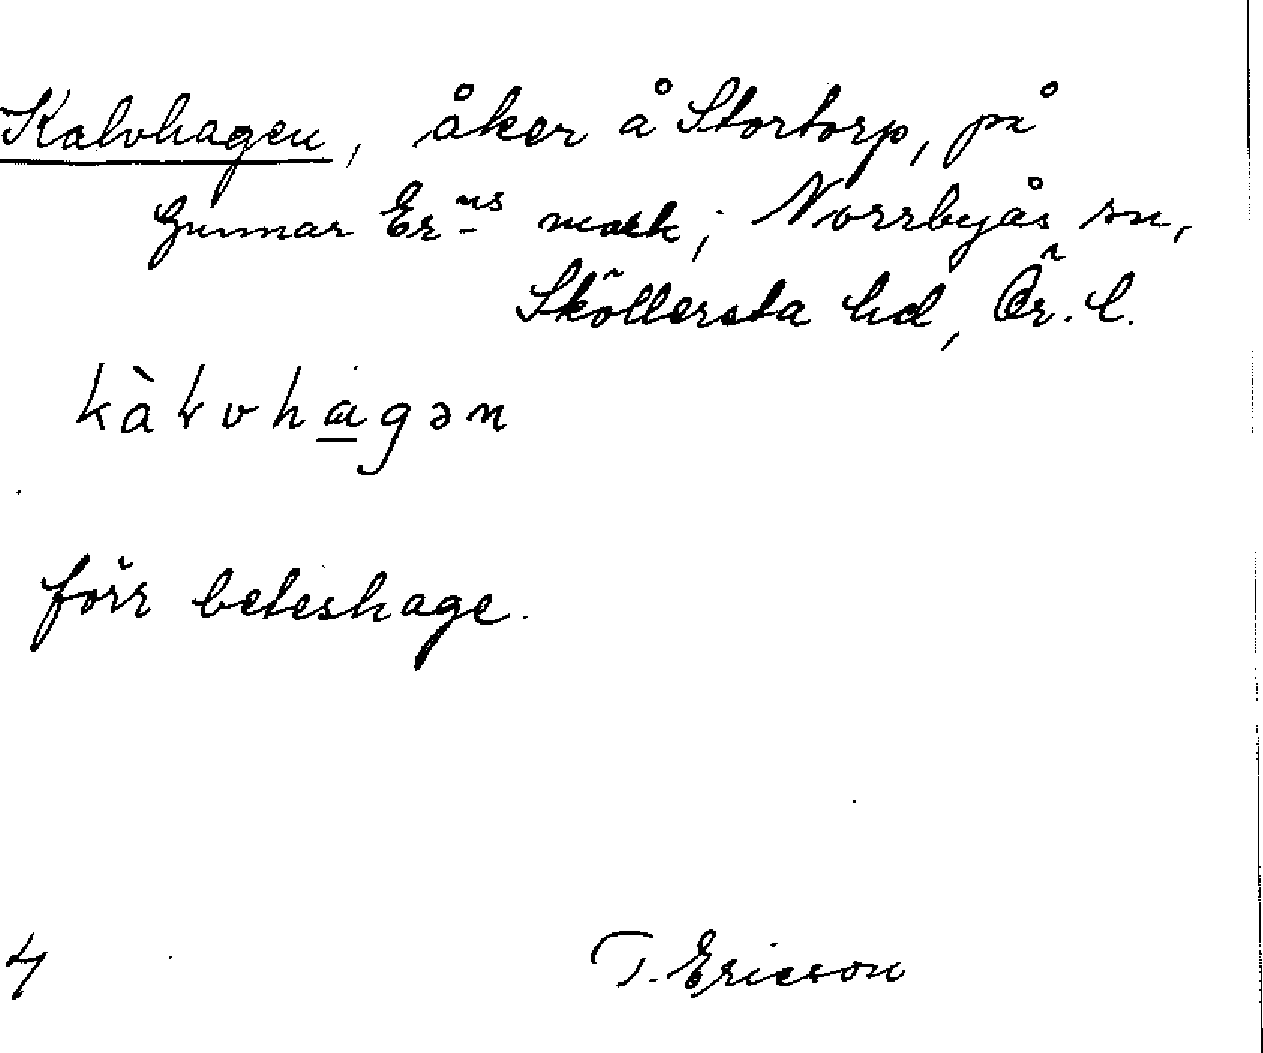 Kalvhagen, åker å Stortorp, på
Gunnar Er-ns mark; Norrbyås sn,
Sköllersta hd, Ör. l.
kàłvhagən
förr beteshage.
4 T. Ericson